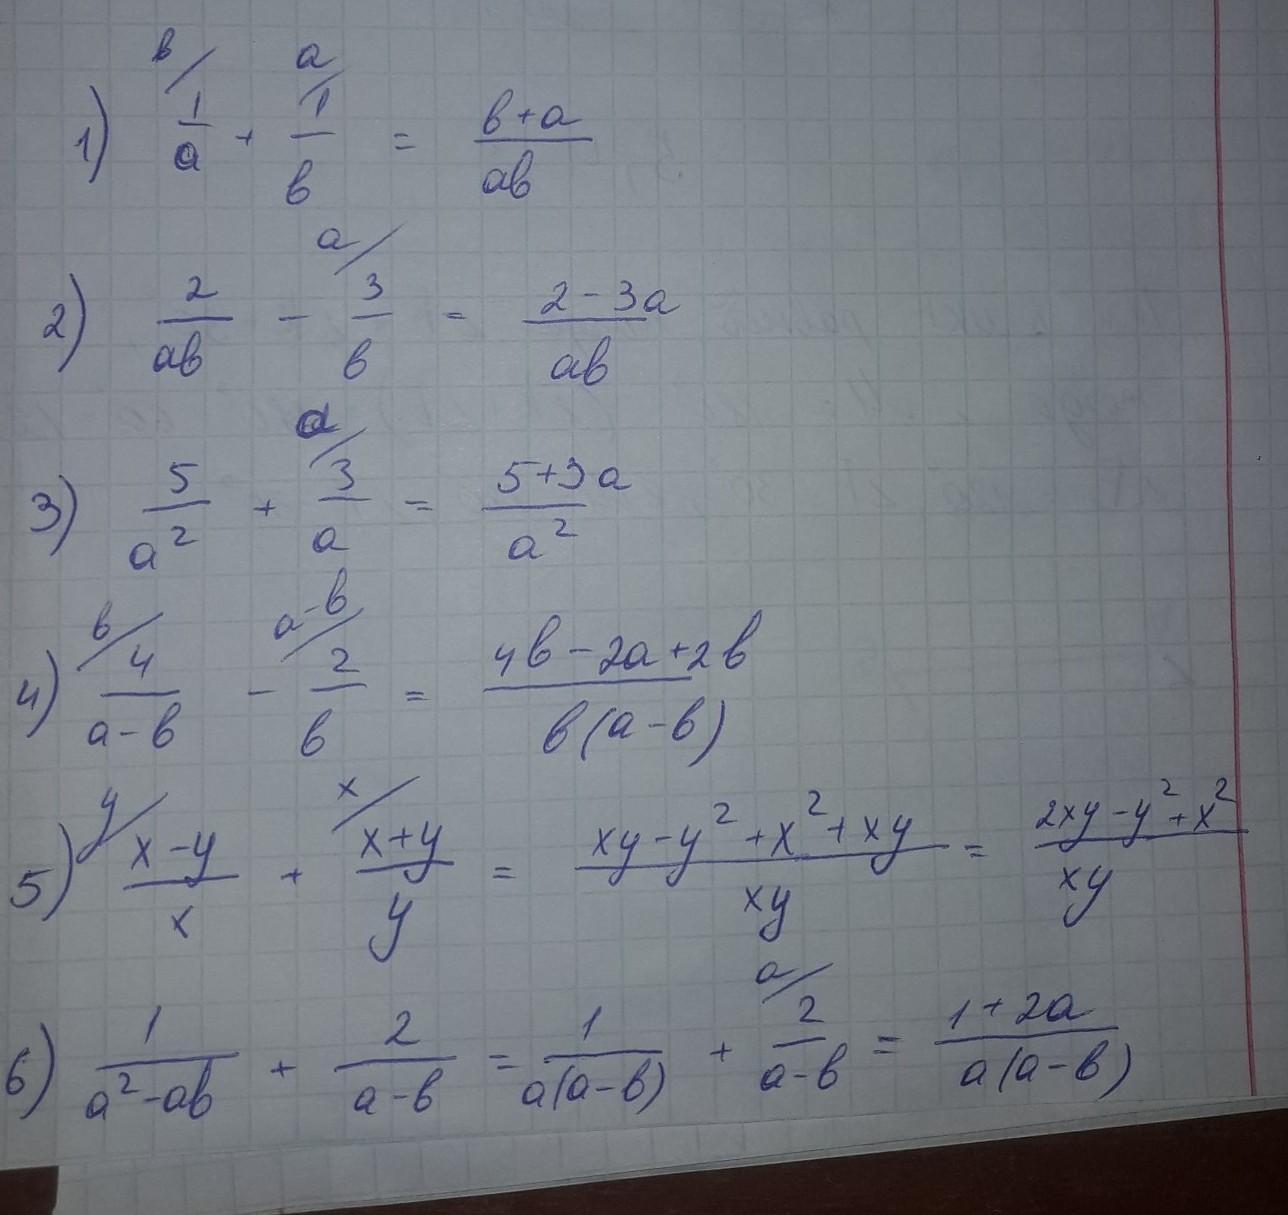 1) b/ 1/a + a/ 1/b = (b+a)/(ab)
2) 2/(ab) - a/ 3/b = (2-3a)/(ab)
3) 5/a² + a/ 3/a = (5+3a)/a²
4) b/ 4/(a-b) - a-b/ 2/b = (4b-2a+2b)/(b(a-b))
5) y/ (x-y)/x + x/ (x+y)/y = (xy-y²+x²+xy)/(xy) = (2xy-y²+x²)/(xy)
6) 1/(a²-ab) + 2/(a-b) = 1/(a(a-b)) + a/ 2/(a-b) = (1+2a)/(a(a-b))